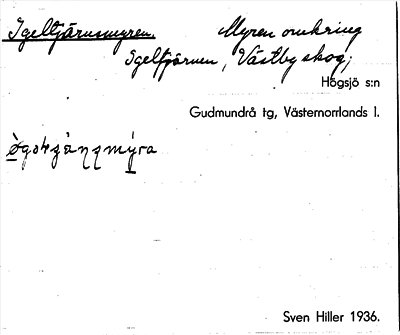 Igeltjärnsmyren. Myren omkring
Igeltjärnen, Västby skog;
Högsjö s:n
Gudmundrå tg, Västernorrlands l.
Sven Hiller 1936.